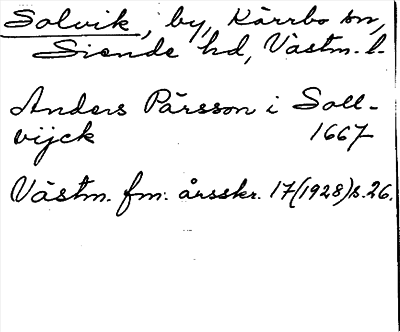 Solvik, by, Kärrbo sn,
Siende hd, Västm. l.
Anders Pärsson i Soll-
vijck 1667
Västm. fm:. årsskr. 17(1928)s.26.